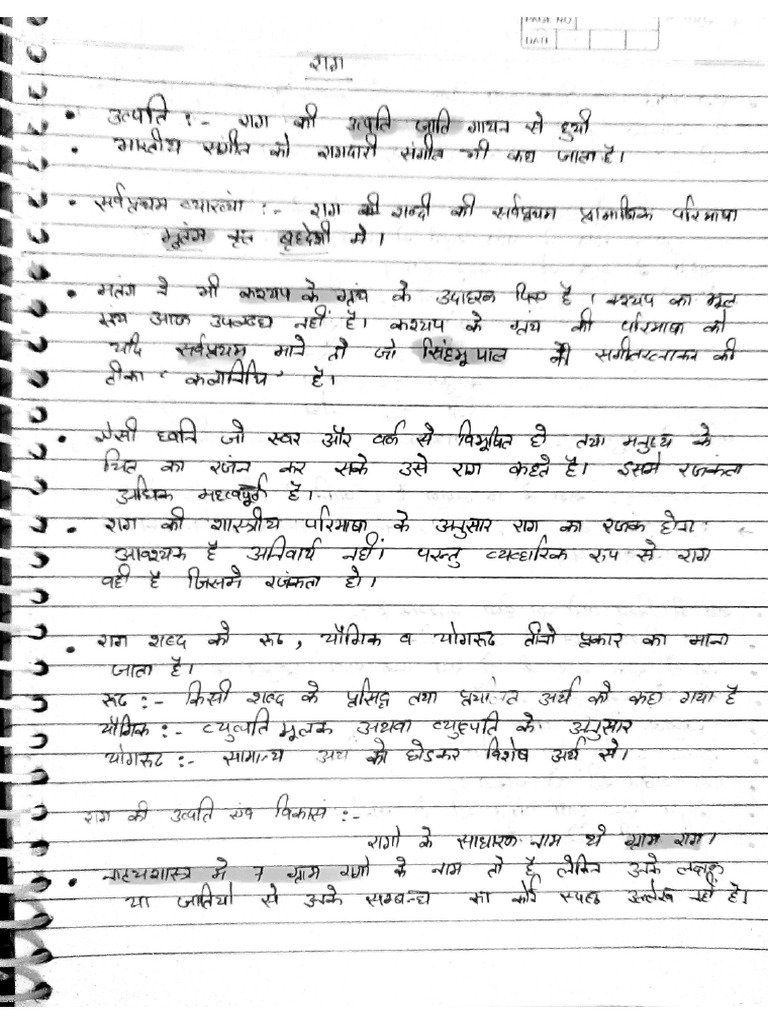 PAGE NO
DATE
राग
• उत्पति :- राग की उत्पति जाति गायन से हुयी
• भारतीय संगीत को रागदारी संगीत भी कहा जाता है।
• सर्वप्रथम व्याख्या :- राग की शब्दी की सर्वप्रथम प्रामाणिक परिभाषा
मतंग कृत बृहद्देशी मे।
• मतंग ने भी कश्यप के ग्रंथ के उदाहरण दिए है। कश्यप का मूल
ग्रन्थ आज उपलब्ध नहीं है। कश्यप के ग्रंथ की परिभाषा को
यदि सर्वप्रथम माने तो जो सिंहभूपाल की संगीतरत्नाकर की
टीका 'कलानिधि' है।
• ऐसी ध्वनि जो स्वर और वर्ण से विभूषित हो तथा मनुष्य के
चित का रजंन कर सके उसे राग कहते है। इसमे रजंकता
अधिक महत्वपूर्ण है।
• राग की शास्त्रीय परिभाषा के अनुसार राग का रजंक होना
आवश्यक है अनिवार्य नहीं। परन्तु व्यव्हारिक रुप से राग
वही है जिसमे रजंकता हो।
• राग शब्द को रूढ, यौगिक व योगरूढ तीनो प्रकार का माना
जाता है।
रूढ :- किसी शब्द के प्रसिद्ध तथा प्रचलित अर्थ को कहा गया है
यौगिक :- व्युत्पति मूलक अथवा व्युत्पति के अनुसार
योगरूढ :- सामान्य अर्थ को छोडकर विशेष अर्थ से।
राग की उत्पति एंव विकास :-
रागो के साधारण नाम थे ग्राम राग।
• नाट्यशास्त्र मे 7 ग्राम रागो के नाम तो है लेकिन उनके लक्षण
या जातियो से उनके सम्बन्ध का कोई स्पष्ट उल्लेख नहीं है।